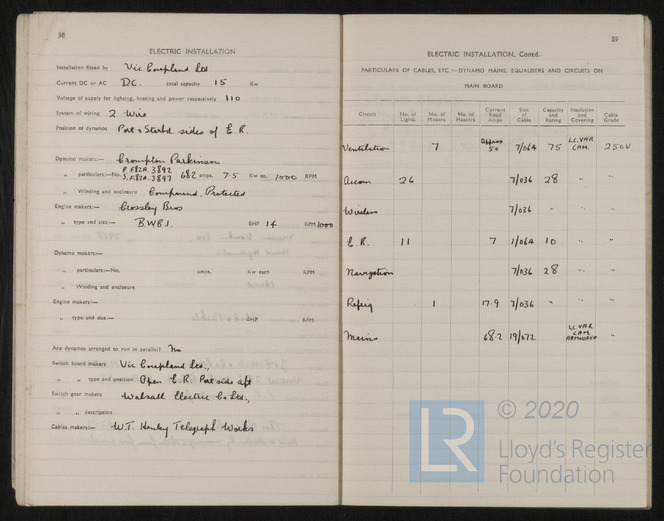 58
ELECTRIC INSTALLATION
Installation fitted by Vic Coupland Ltd
Current DC or AC DC. total capacity 15 Kw
Voltage of supply for lighting, heating and power respectively 110
System of wiring 2 Wire
Position of dynamos Port & Starbd. sides of E.R.
Dynamo makers:— Crompton Parkinson
P. F82A.3892
„ particulars:—No. S.F82A.3897 682 amps. 75 Kw ea. 1000 RPM
„ Winding and enclosure Compound, Protected
Engine makers:— Crossley Bros
„ type and size:— B.W.B.1. BHP 14 RPM 1000
Dynamo makers:—
„ particulars:—No. amps. Kw each RPM
„ Winding and enclosure
Engine makers:—
„ type and size:— BHP RPM
Are dynamos arranged to run in parallel? No
Switch board makers Vic Coupland Ltd.,
„ „ type and position Open E.R. Port side aft
Switch gear makers Walsall Electric Co Ltd.,
„ „ description
Cables makers:— W.T. Henley Telegraph Works
59
ELECTRIC INSTALLATION, Contd.
PARTICULARS OF CABLES, ETC.:—DYNAMO MAINS, EQUALISERS AND CIRCUITS ON
MAIN BOARD
Circuit No. of Lights No. of Motors No. of Heaters Current Reqd Amps Size of Cable Capacity and Rating Insulation and Covering Cable Grade
Ventilation 7 Approx 50 7/064 75 LC.VAR CAM. 250V
Accom 26 7/036 28 „ „
Wireless 7/036 „ „
E.R. 11 7 1/064 10 „ „
Navigation 7/036 28 „ „
Refrig 1 17.9 7/036 „ „ „
Mains 68.2 19/072 LC.VAR CAM ARMOURED „
LR
© 2020
Lloyd's Register
Foundation